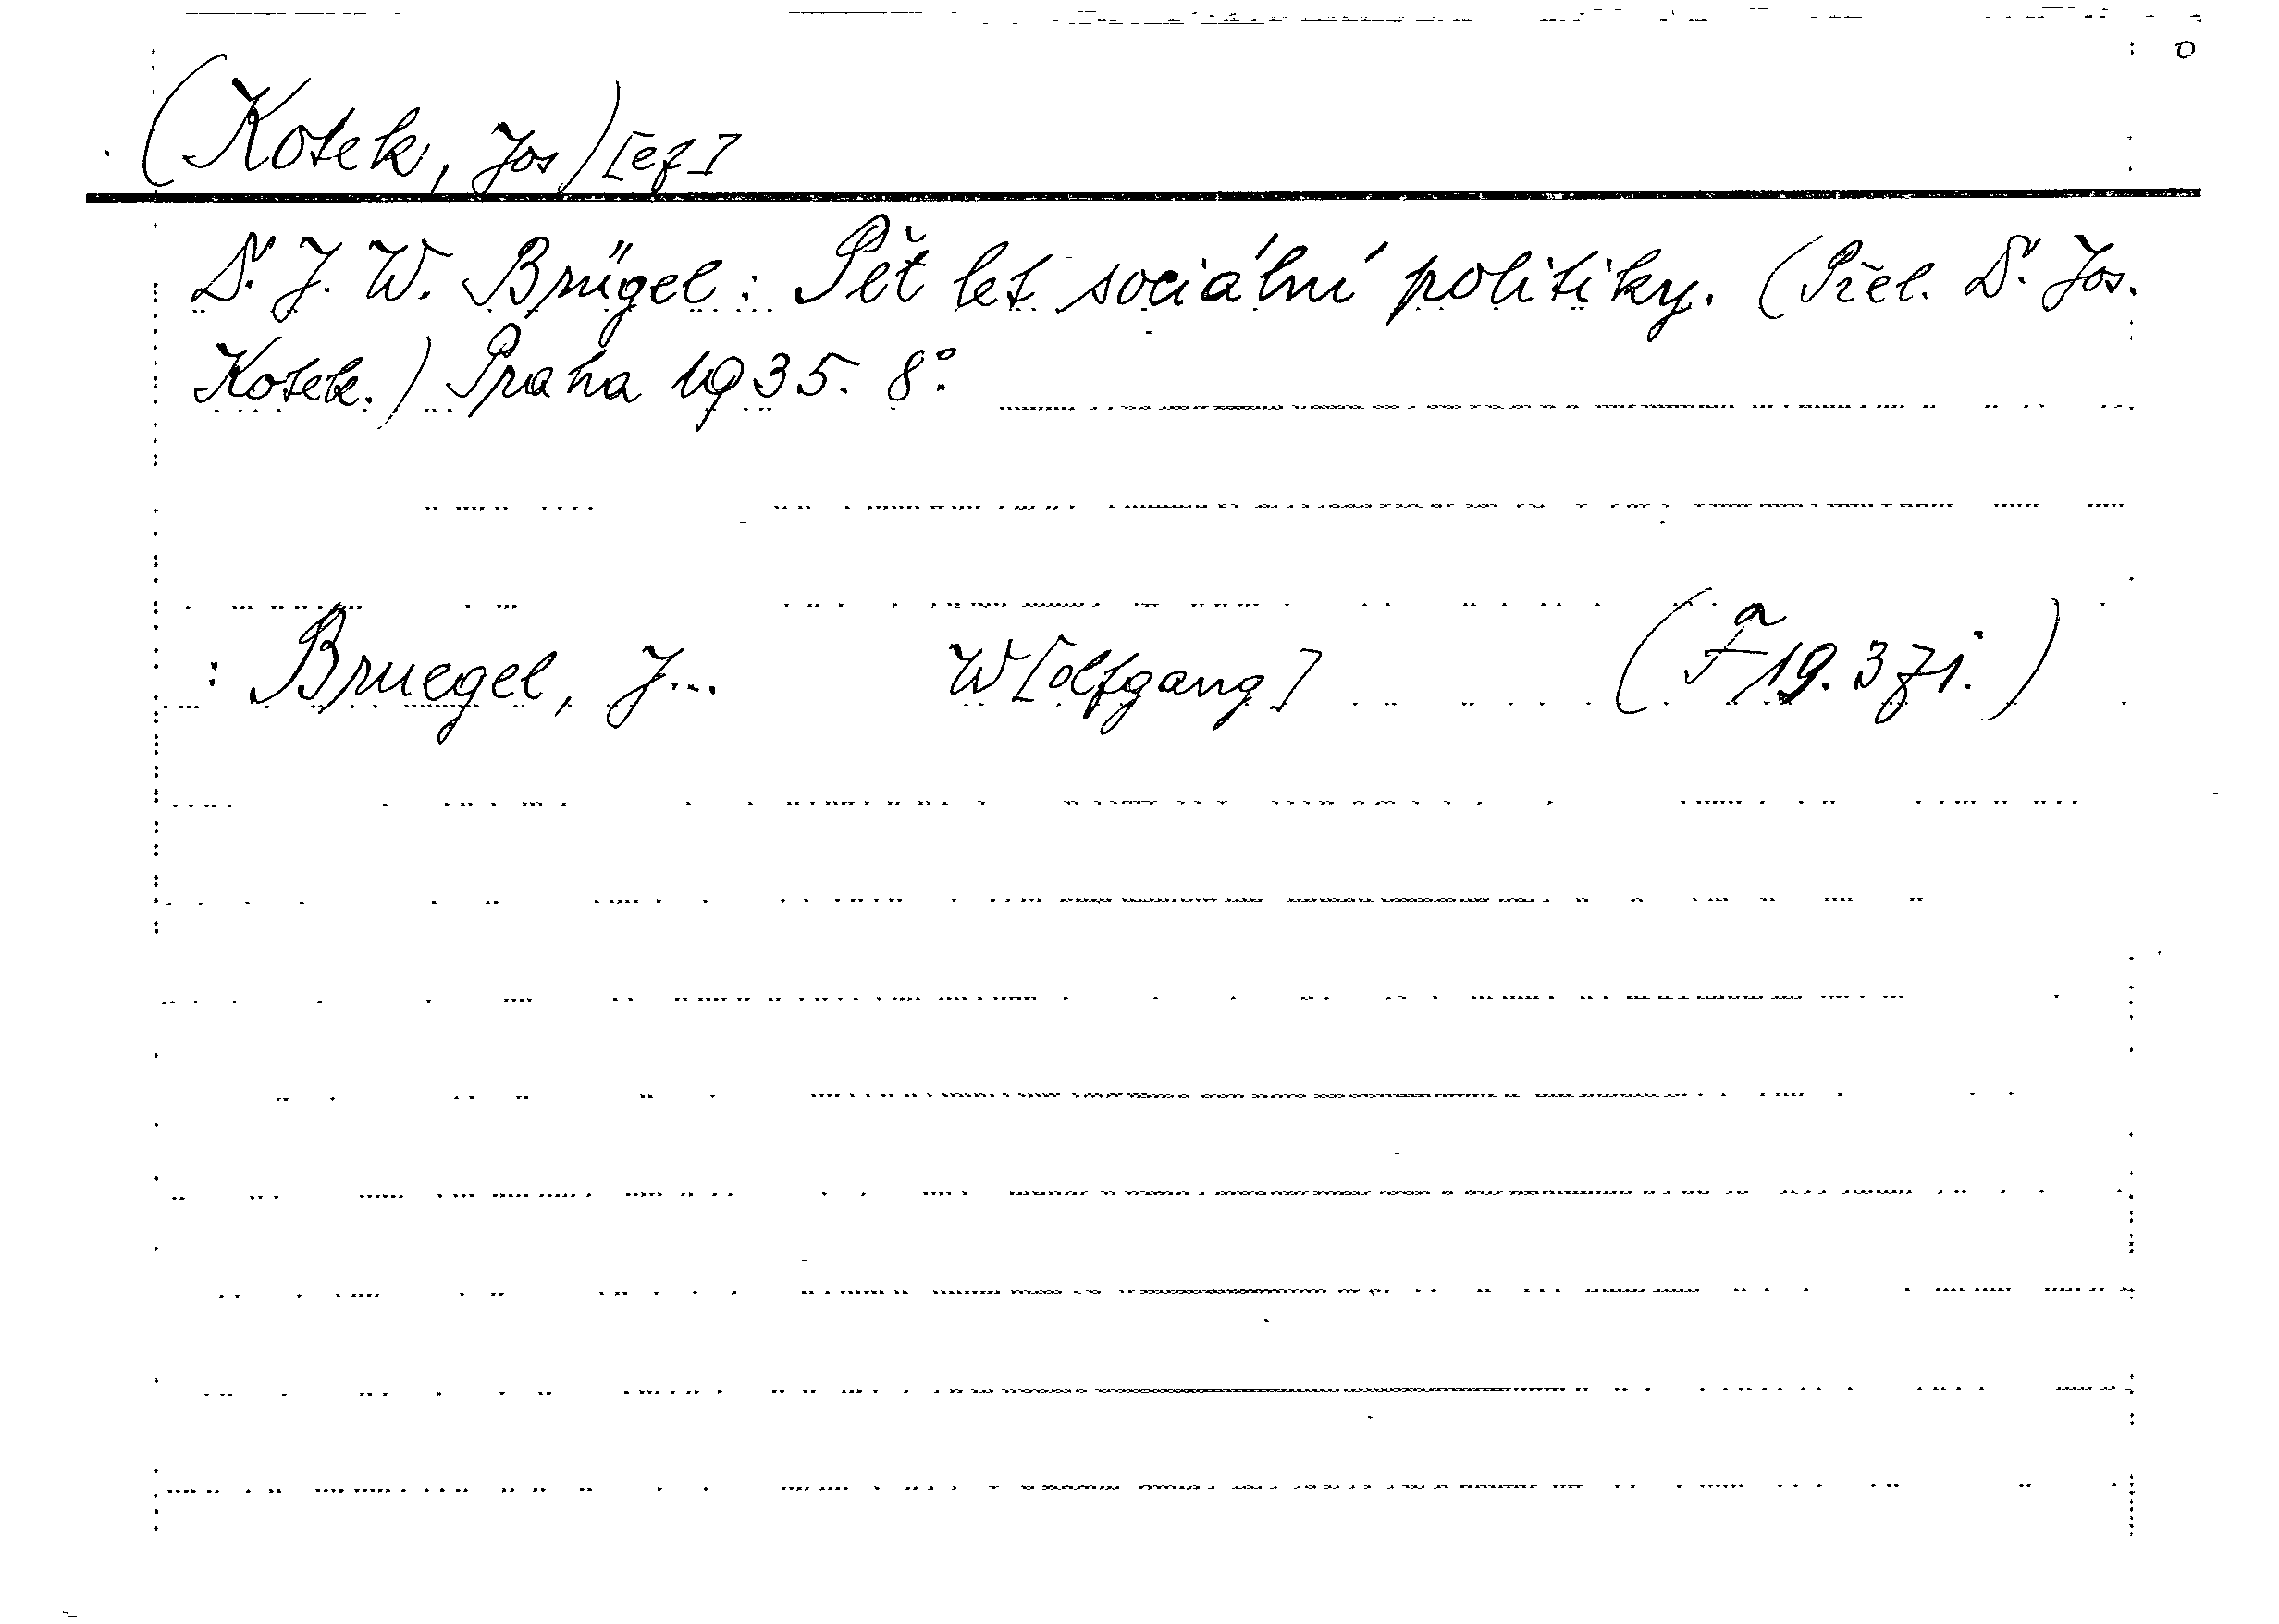 (Kotek, Jos)[ef]
Dr. J. W. Brügel: Pět let sociální politiky. (Přel. Dr. Jos.
Kotek.) Praha 1935. 8°.
: Bruegel, J... W[olfgang] (Fa 19.371.)